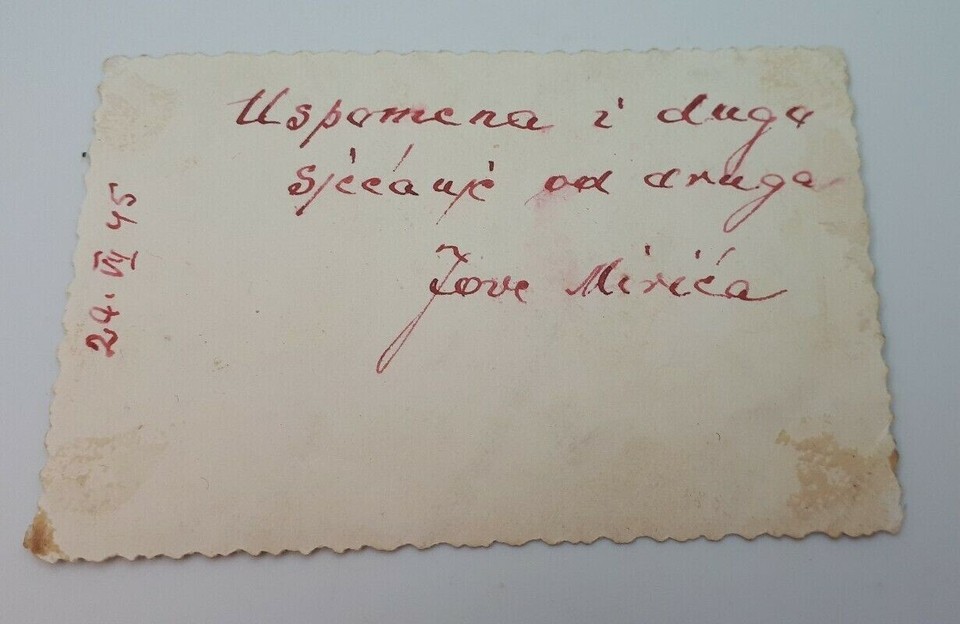 Uspomena i dugo
sjećanje od druga
Jove Mirića
24. VII 45